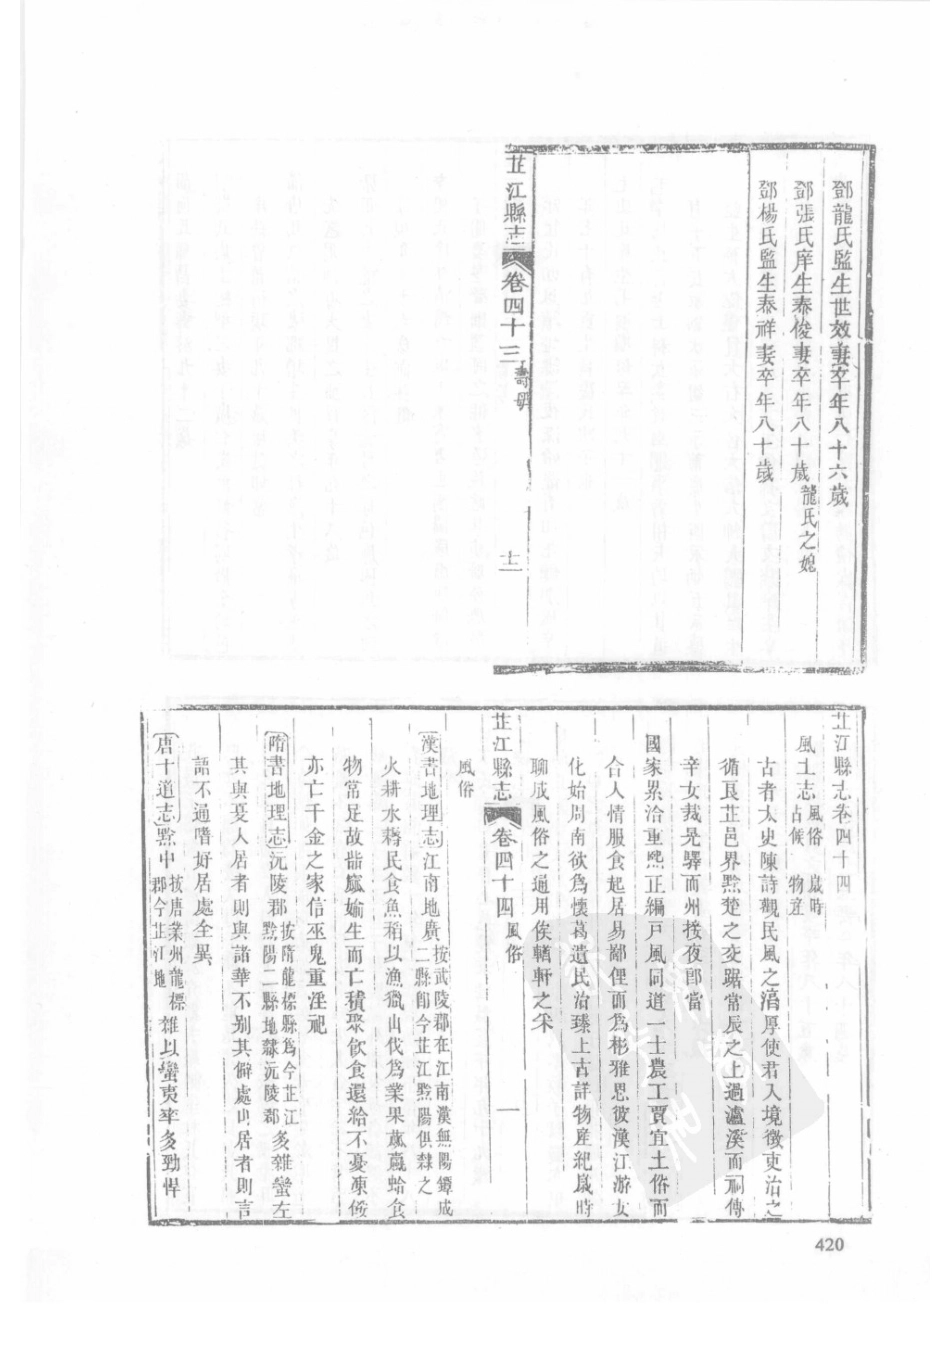 鄧龍氏監生世效妻卒年八十六歲
鄧張氏庠生泰俊妻卒年八十歲龍氏之媳
鄧楊氏監生泰祥妻卒年八十歲
芷江縣志 卷四十三 壽婦 十一
芷江縣志卷四十四
風土志 風俗 歲時
占候 物產
古者太史陳詩觀民風之漓厚使君入境徵吏治之
循良芷邑界黔楚之交踞常辰之上過瀘溪而祠傳
辛女裁晃驛而州接夜郎當
國家累洽重熙正編戶風同道一士農工賈宜土俗而
合人情服食起居易鄙俚而為彬雅思彼漢江游女
化始周南欲為懷葛遺民治臻上古詳物產紀歲時
聊成風俗之通用俟輶軒之采
芷江縣志 卷四十四 風俗 一
風俗
漢書地理志江南地廣 按武陵郡在江南漢無陽鐔成
二縣即今芷江黔陽俱隸之
火耕水耨民食魚稻以漁獵山伐為業果蓏蠃蛤食
物常足故啙窳婾生而亡積聚飲食還給不憂凍餒
亦亡千金之家信巫鬼重淫祀
隋書地理志沅陵郡 按隋龍檦縣為今芷江
黔陽二縣地隸沅陵郡 多雜蠻左
其與夏人居者則與諸華不別其僻處山居者則言
語不通嗜好居處全異
唐十道志黔中 按唐業州龍標
郡今芷江地 雜以蠻夷率多勁悍
420